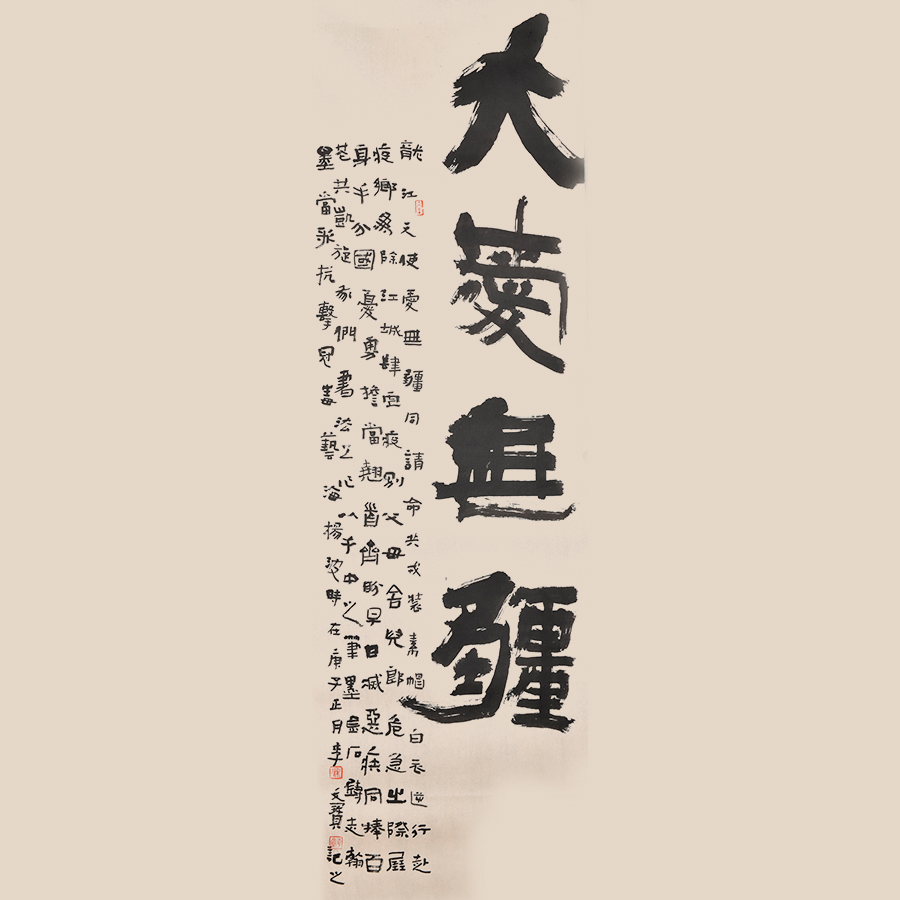 大愛無疆
龍江天使愛無疆同請命共戎裝素帽白衣逆行赴
疫鄉為除江城肆虐疫別父母舍兒郎危急之際展
身手分國憂勇擔當翹首齊盼早日滅惡疾同捧百
花共凱旋我們書法之心以手中之筆墨石志翰
墨當抗擊冠毒藝海揚波時在庚子正月李文寶記之